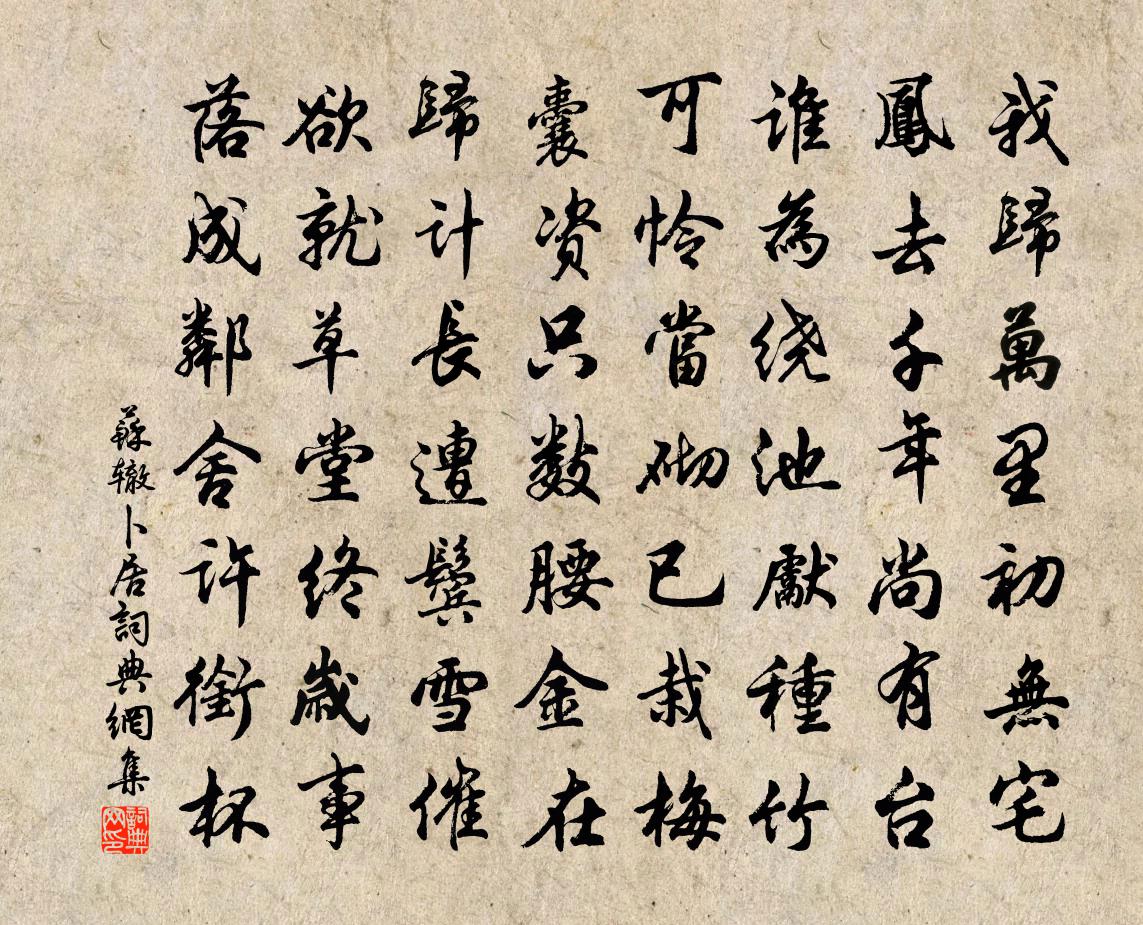 我歸萬里初無宅
鳳去千年尚有台
誰為繞池獻種竹
可怜當砌已栽梅
囊资只數腰金在
歸計長遭鬢雪催
欲就草堂終歲事
落成鄰舍許銜杯
蘇辙卜居詞典網集
詞典网印